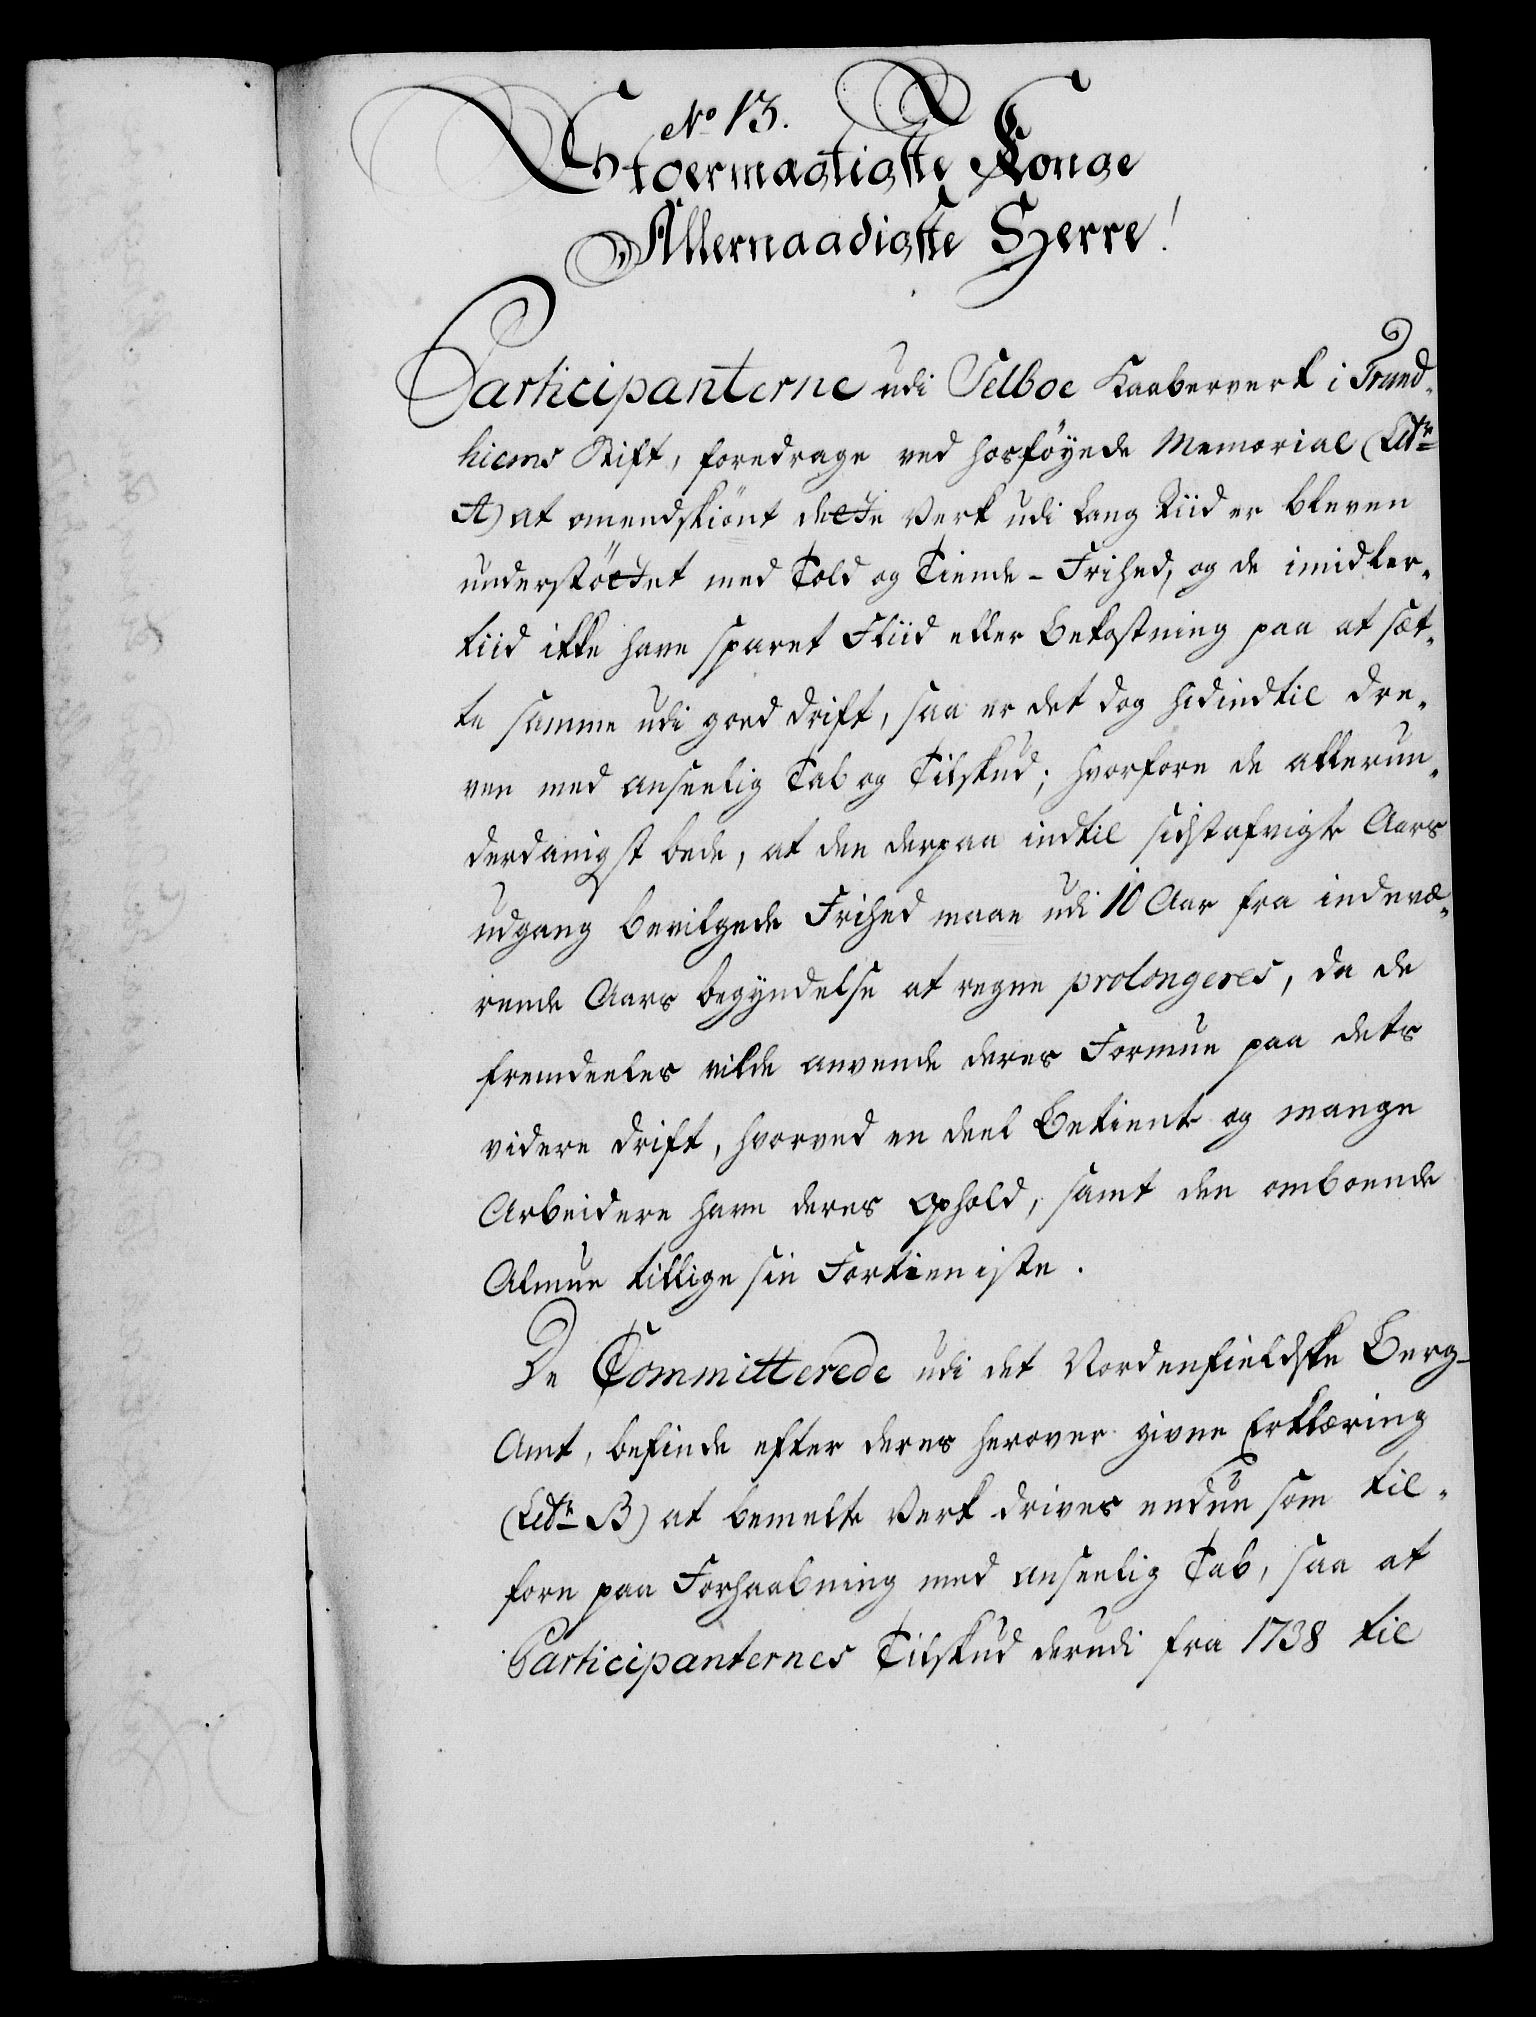 No 13.
Stoermægtigste Konge
Allernaadigste Herre!
Participanterne udi Selboe Kaaberverk i Trund-
hiems Stift, foredrage ved hosføyede Memorial (Litr
A) at omendskiønt dette Verk udi lang Tiid er bleven
understøttet med Told og Tiende-Frihed, og de imidler-
tiid ikke have sparet Fliid eller Bekostning paa at sæt-
te samme udi goed drift, saa er det dog hidindtil dre-
ven med anseelig Tab og Tilskud; hvorfore de allerun-
derdanigst bede, at den derpaa indtil sidstafvigte Aars
udgang bevilgede Frihed maae udi 10 Aar fra indevæ-
rende Aars begyndelse at regne prolongeres, da de
fremdeeles vilde anvende deres Formue paa dets
videre drift, hvorved en deel Betiente og mange
Arbeidere have deres Ophold, samt den omboende
Almue tillige sin Fortieniste.
De Committerede udi det Nordenfieldske Berg-
Amt, befinde efter deres herover givne Erklæring
(Litr B) at bemelte Verk drives endnu som til-
forn paa Forhaabning med anseelig Tab, saa at
Participanternes Tilskud derudi fra 1738 til